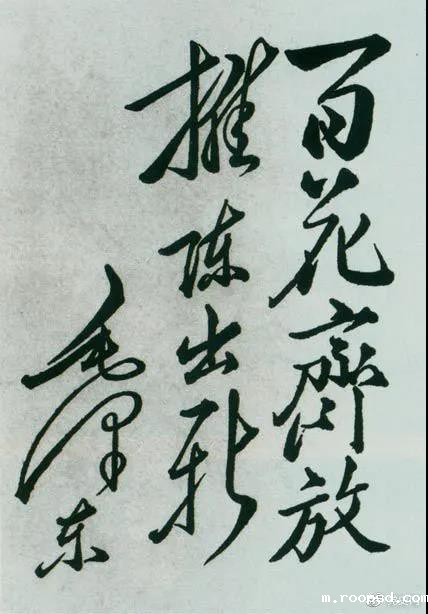 百花齊放
推陈出新
毛泽东
m.rooped.com